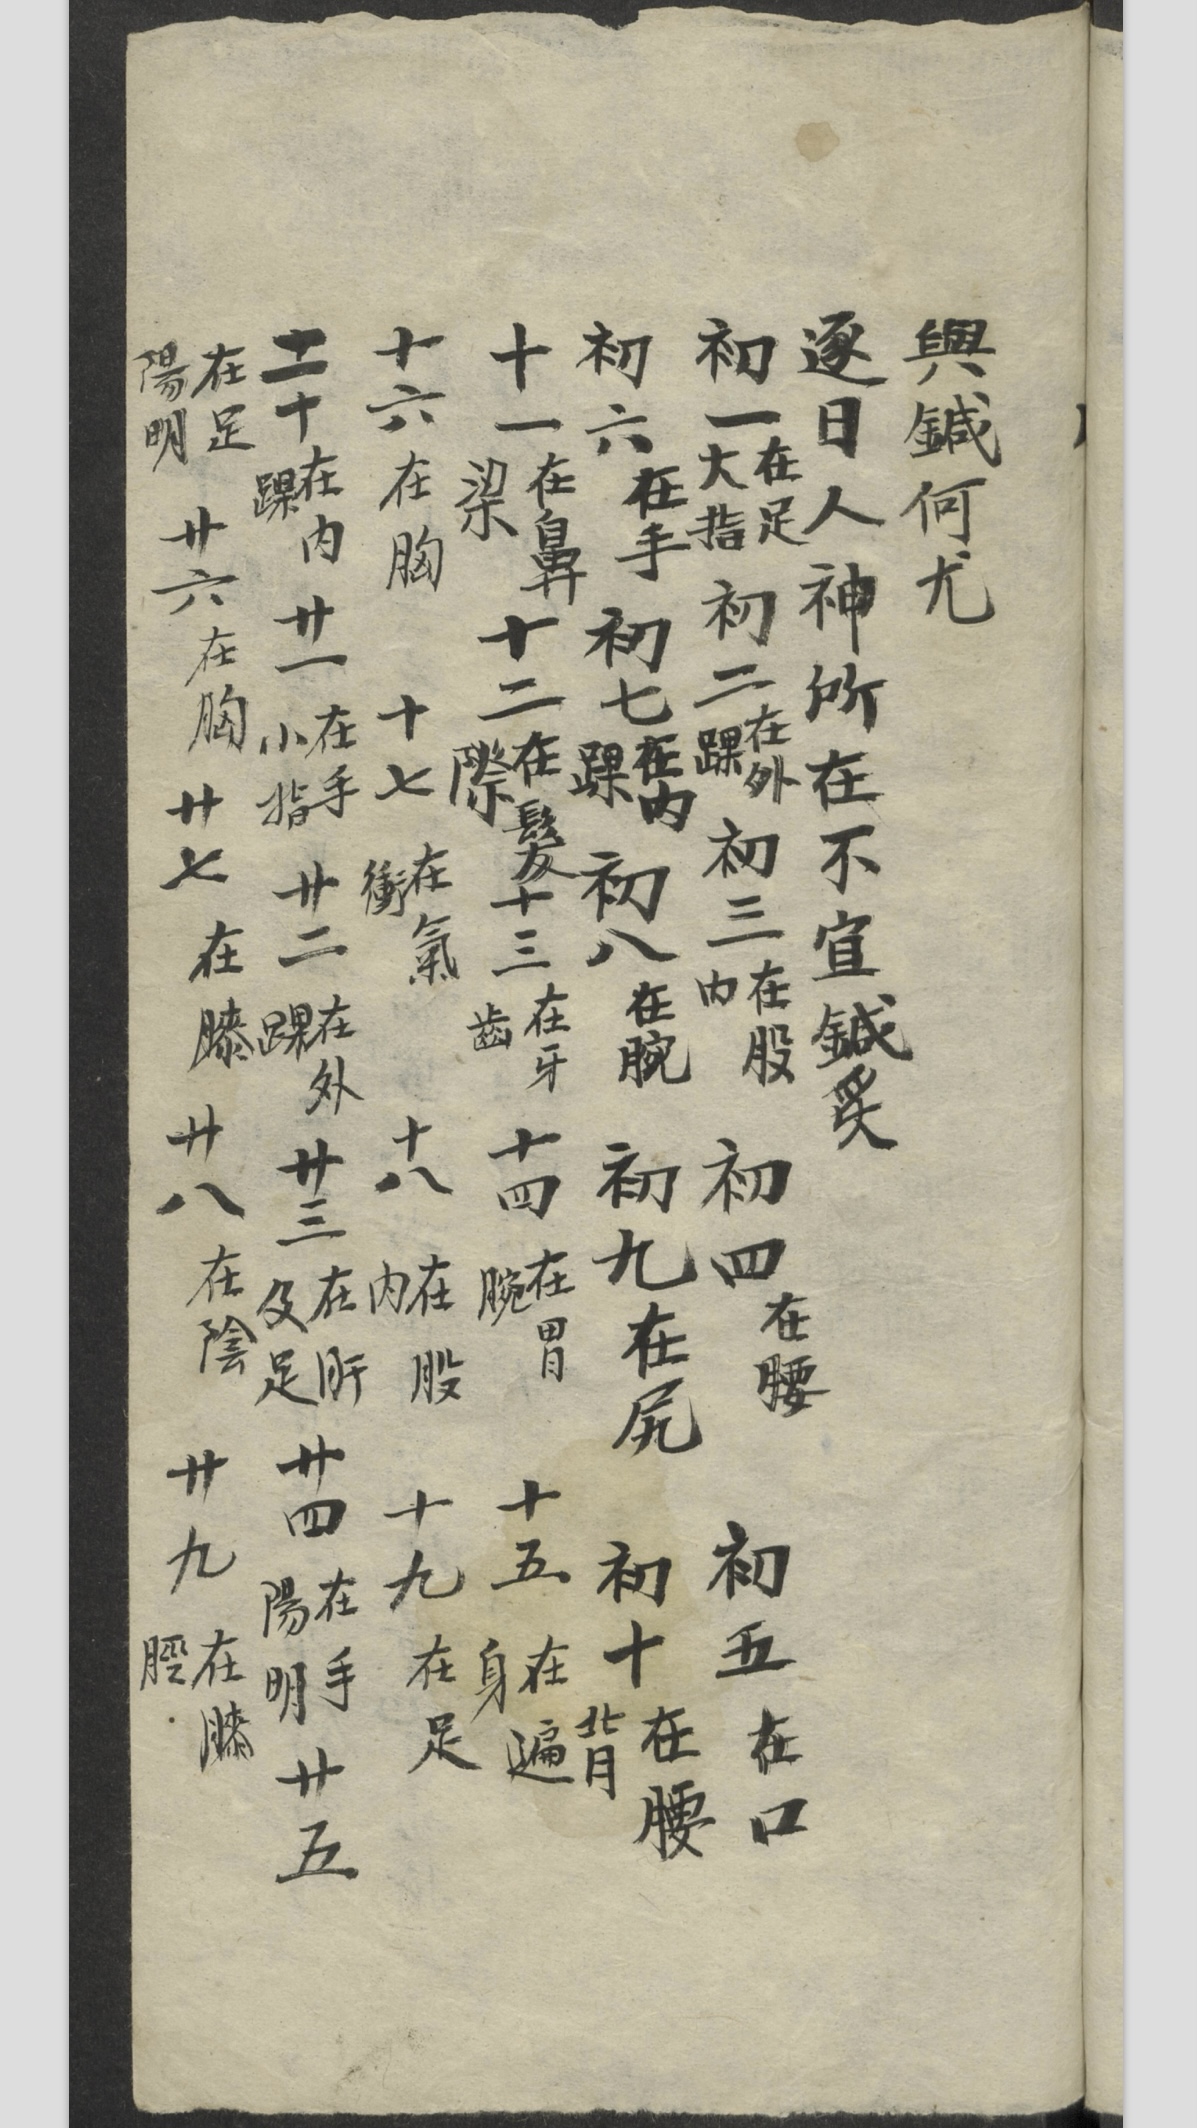 與鍼何尤
逐日人神所在不宜鍼炙
初一在足大指初二在外踝初三在股内初四在腰初五在口
初六在手初七在内踝初八在腕初九在尻初十在腰背
十一在鼻梁十二在髮際十三在牙齒十四在胃腕十五在遍身
十六在胸十七在氣衝十八在股内十九在足
二十在内踝廿一在手小指廿二在外踝廿三在肝及足廿四在手陽明廿五
在足陽明廿六在胸廿七在膝廿八在陰廿九在膝脛